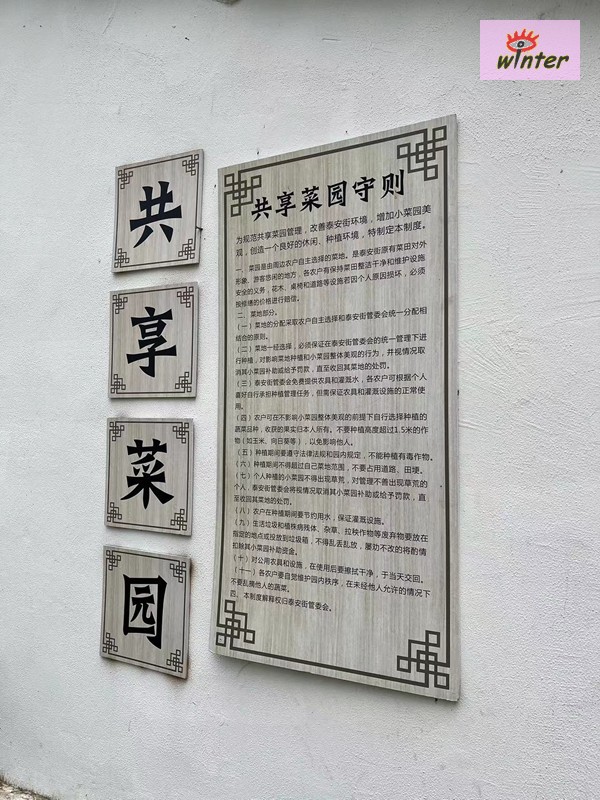 winter
共
享
菜
园
共享菜园守则
为规范共享菜园管理，改善泰安街环境，增加小菜园美
观，创造一个良好的休闲、种植环境，特制定本制度。
一、菜园是由周边农户自主选择的菜地。是泰安街原有菜田对外
形象、游客悠闲的地方，各农户有保持菜田整洁干净和维护设施
安全的义务，花木、桌椅和道路等设施若因个人原因损坏，必须
按维缮的价格进行赔偿。
二、菜地部分。
（一）菜地的分配采取农户自主选择和泰安街管委会统一分配相
结合的原则。
（二）菜地一经选择，必须保证在泰安街管委会的统一管理下进
行种植，对影响菜地种植和小菜园整体美观的行为，并视情况取
消其小菜园补助或给予罚款，直至收回其菜地的处罚。
（三）泰安街管委会免费提供农具和灌溉水，各农户可根据个人
喜好自行承担种植管理任务，但需保证农具和灌溉设施的正常使
用。
（四）农户可在不影响小菜园整体美观的前提下自行选择种植的
蔬菜品种，收获的果实归本人所有。不要种植高度超过1.5米的作
物（如玉米、向日葵等），以免影响他人。
（五）种植期间要遵守法律法规和园内规定，不能种植有毒作物。
（六）种植期间不得超过自己菜地范围，不要占用道路、田埂。
（七）个人种植的小菜园不得出现草荒，对管理不善出现草荒的
个人，泰安街管委会将视情况取消其小菜园补助或给予罚款，直
至收回其菜地的处罚。
（八）农户在种植期间要节约用水，保证灌溉设施。
（九）生活垃圾和植株病残体、杂草、拉秧作物等废弃物要放在
指定的地点或投放到垃圾箱，不得乱丢乱放，屡劝不改的将酌情
扣除其小菜园补助资金。
（十）对公用农具和设施，在使用后要擦拭干净，于当天交回。
（十一）各农户要自觉维护园内秩序，在未经他人允许的情况下
不要乱摘他人的蔬菜。
四、本制度解释权归泰安街管委会。